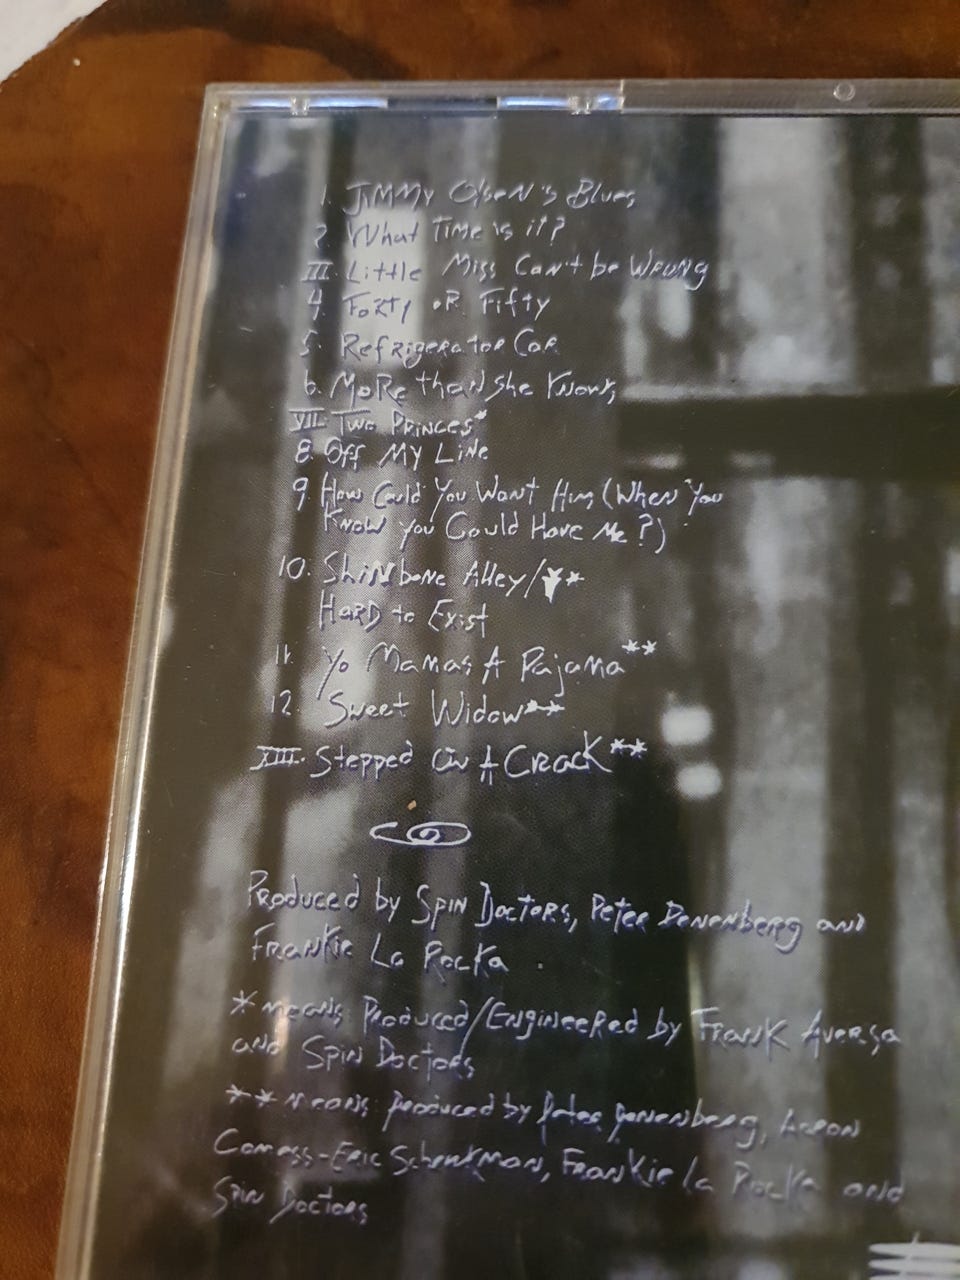 1. Jimmy Olsen's Blues
2 What Time is it?
III. Little Miss Can't be Wrong
4. Forty or Fifty
5. Refrigerator Car
6. More than She Knows
VII. Two Princes*
8. Off My Line
9. How Could You Want Him (When You
Know you Could Have Me?)
10. Shinbone Alley/*
Hard to Exist
11. Yo Mamas A Pajama**
12. Sweet Widow**
XIII. Stepped On A Crack**
Produced by Spin Doctors, Peter Denenberg and
Frankie La Rocka
*means Produced/Engineered by Frank Aversa
and Spin Doctors
**means Produced by Peter Denenberg, Aaron
Comess-Eric Schenkman, Frankie La Rocka and
Spin Doctors